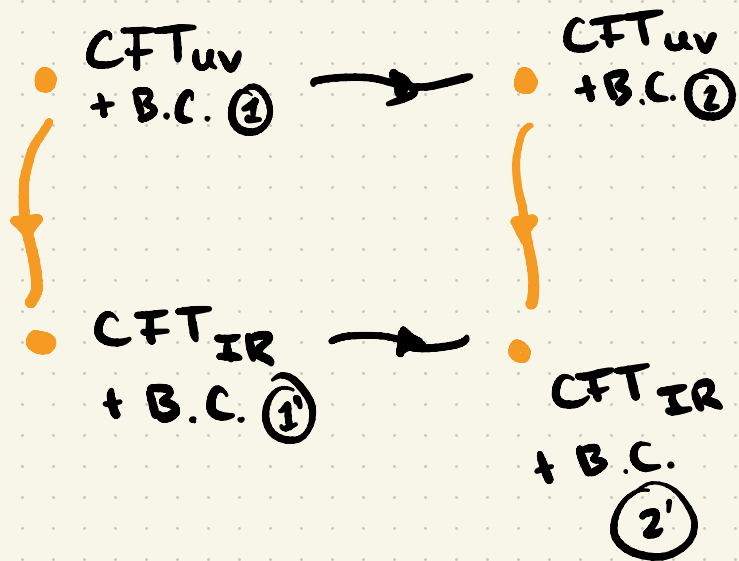 CFTuv
+ B.C. ①
CFTuv
+B.C. ②
CFT IR
+ B.C. 1'
CFT IR
+ B.C.
2'